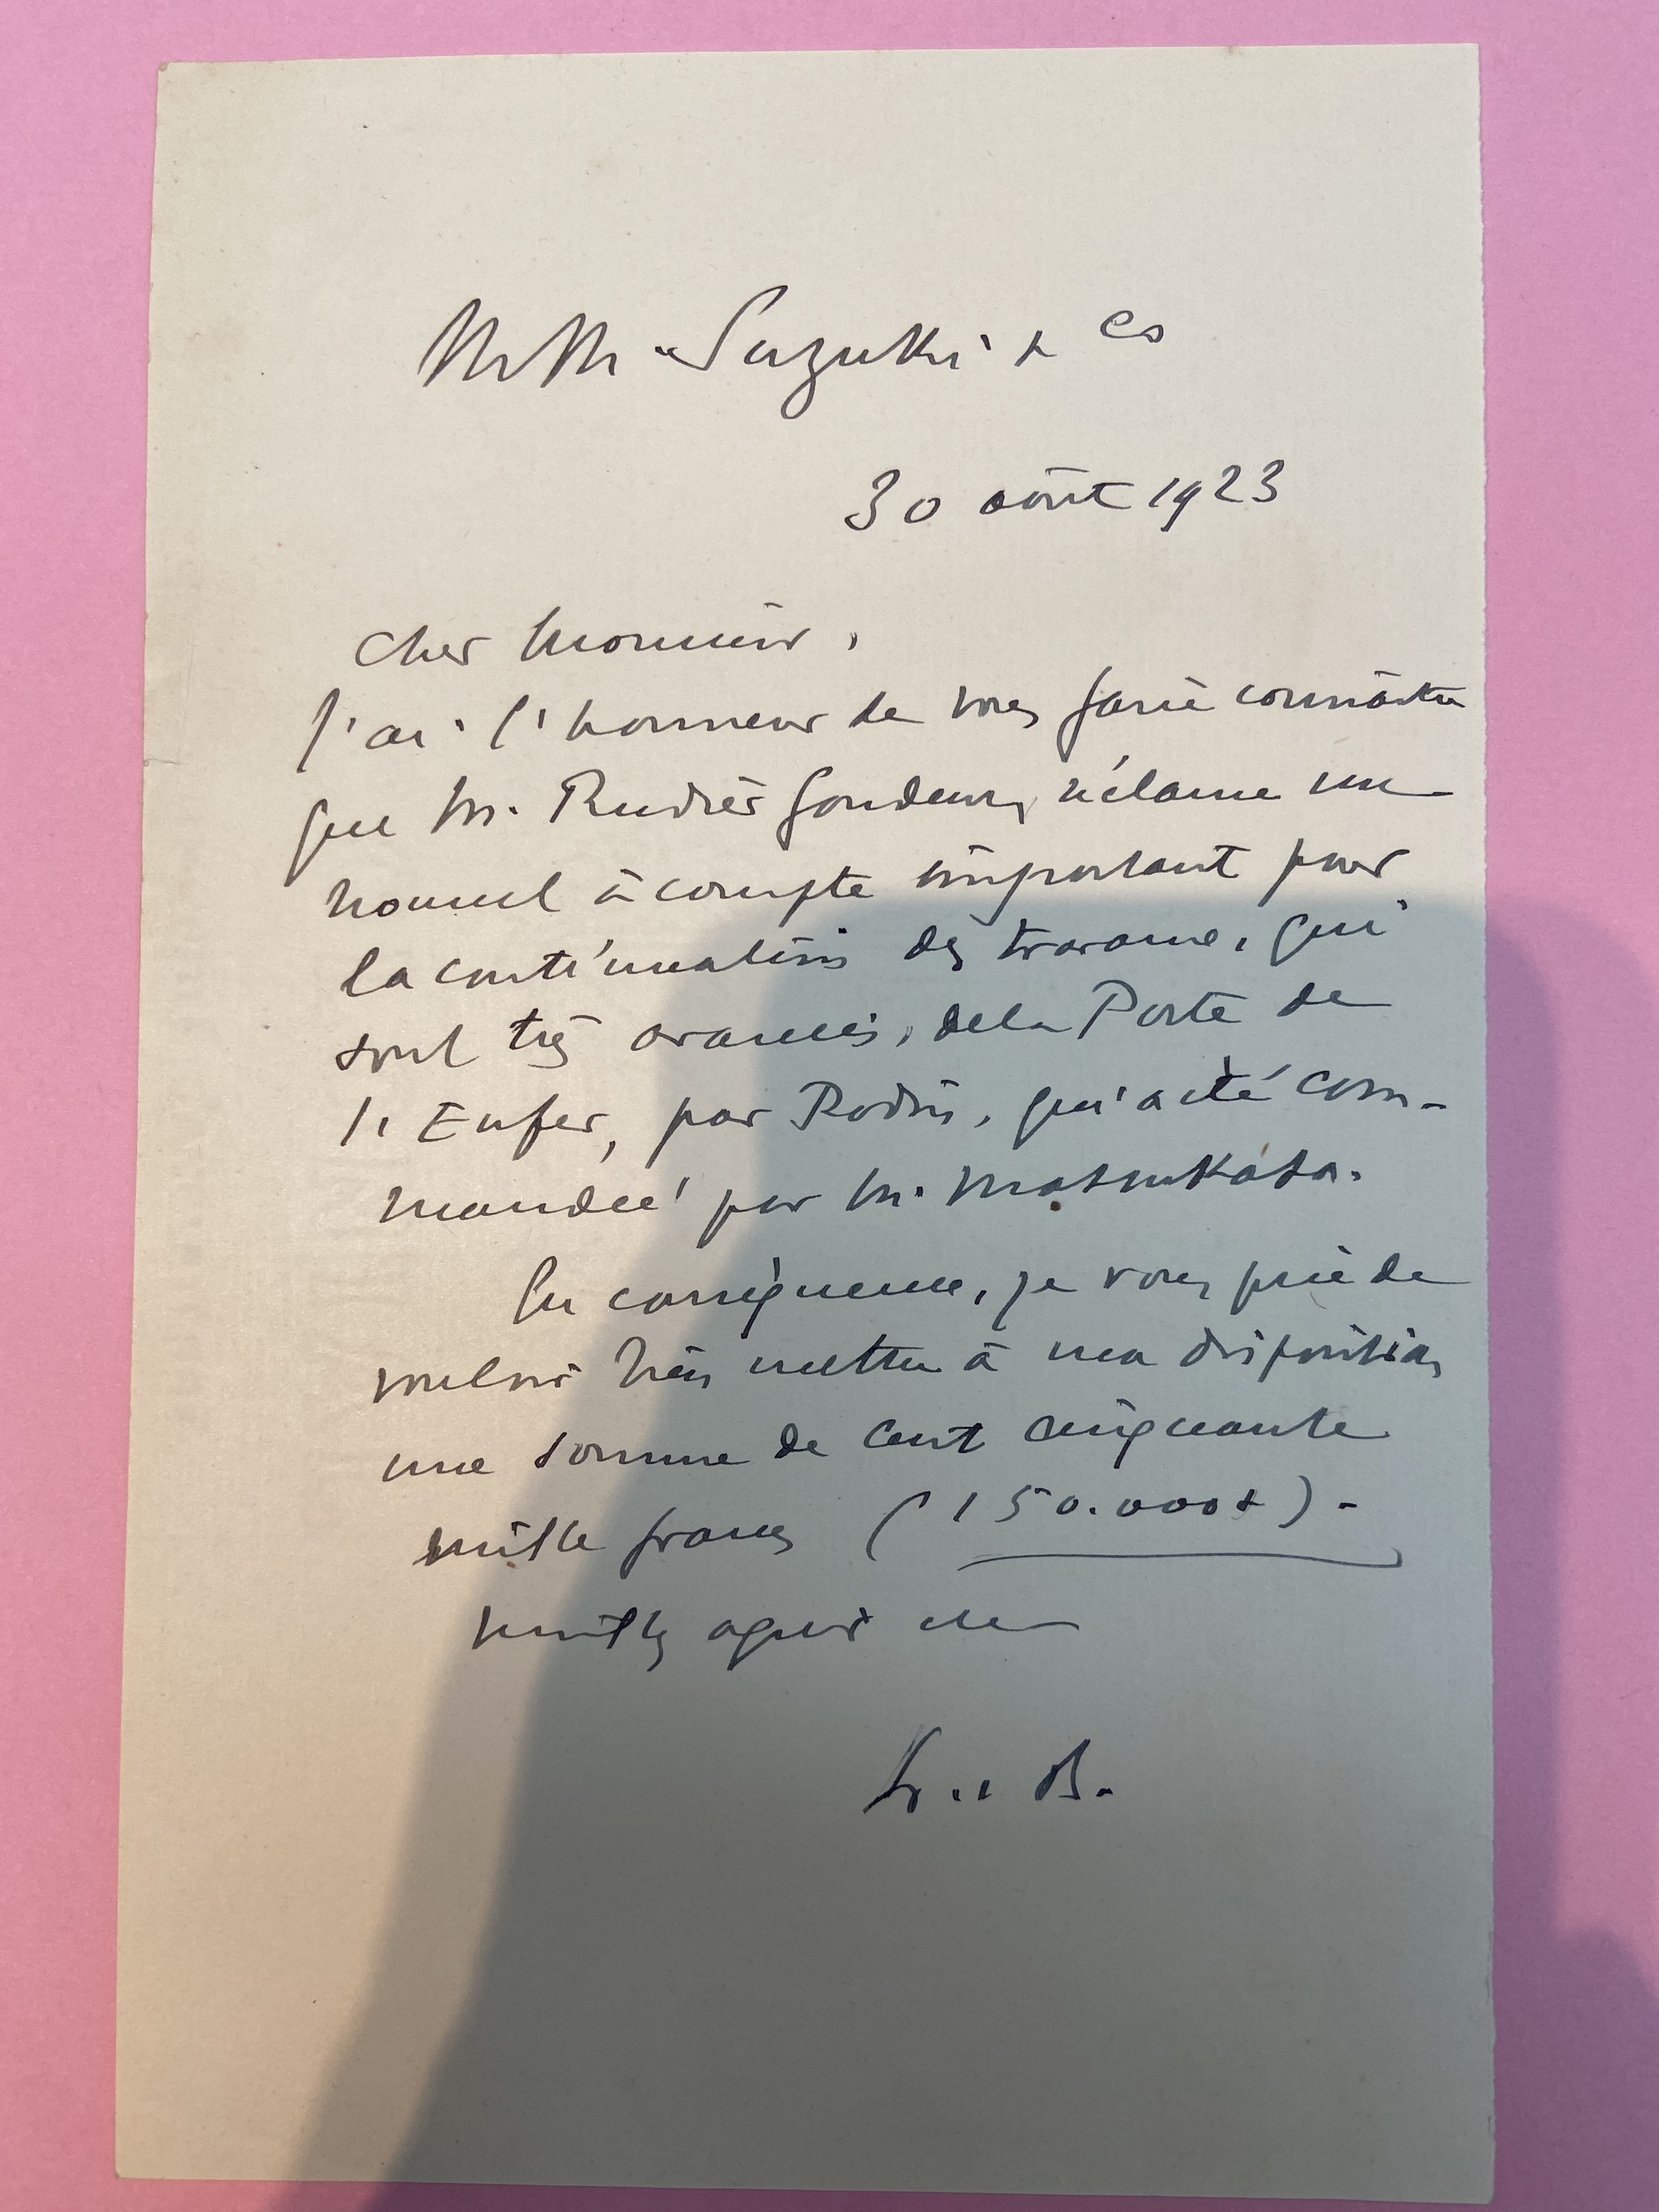 MM. Suzuki & Co
30 août 1923
Cher Monsieur,
J'ai l'honneur de vous faire connaître
que M. Rudier fondeur, réclame un
nouvel à compte important pour
la continuation des travaux, qui
sont très avancés, de la Porte de
l'Enfer, par Rodin, qui a été com-
mandée par M. Matsukata.
En conséquence, je vous prie de
vouloir bien mettre à ma disposition
une somme de cent cinquante
mille francs (150.000 f).
Veuillez agréer etc
L. B.